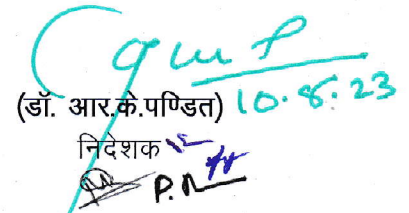 (डॉ. आर.के.पण्डित) 10.8.23
निदेशक
P.R